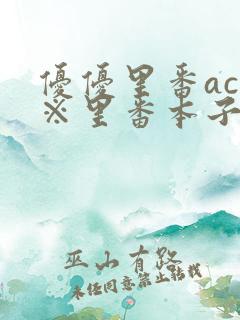 優優里番ac
※里番本子
巫山有路
未经同意禁止转载